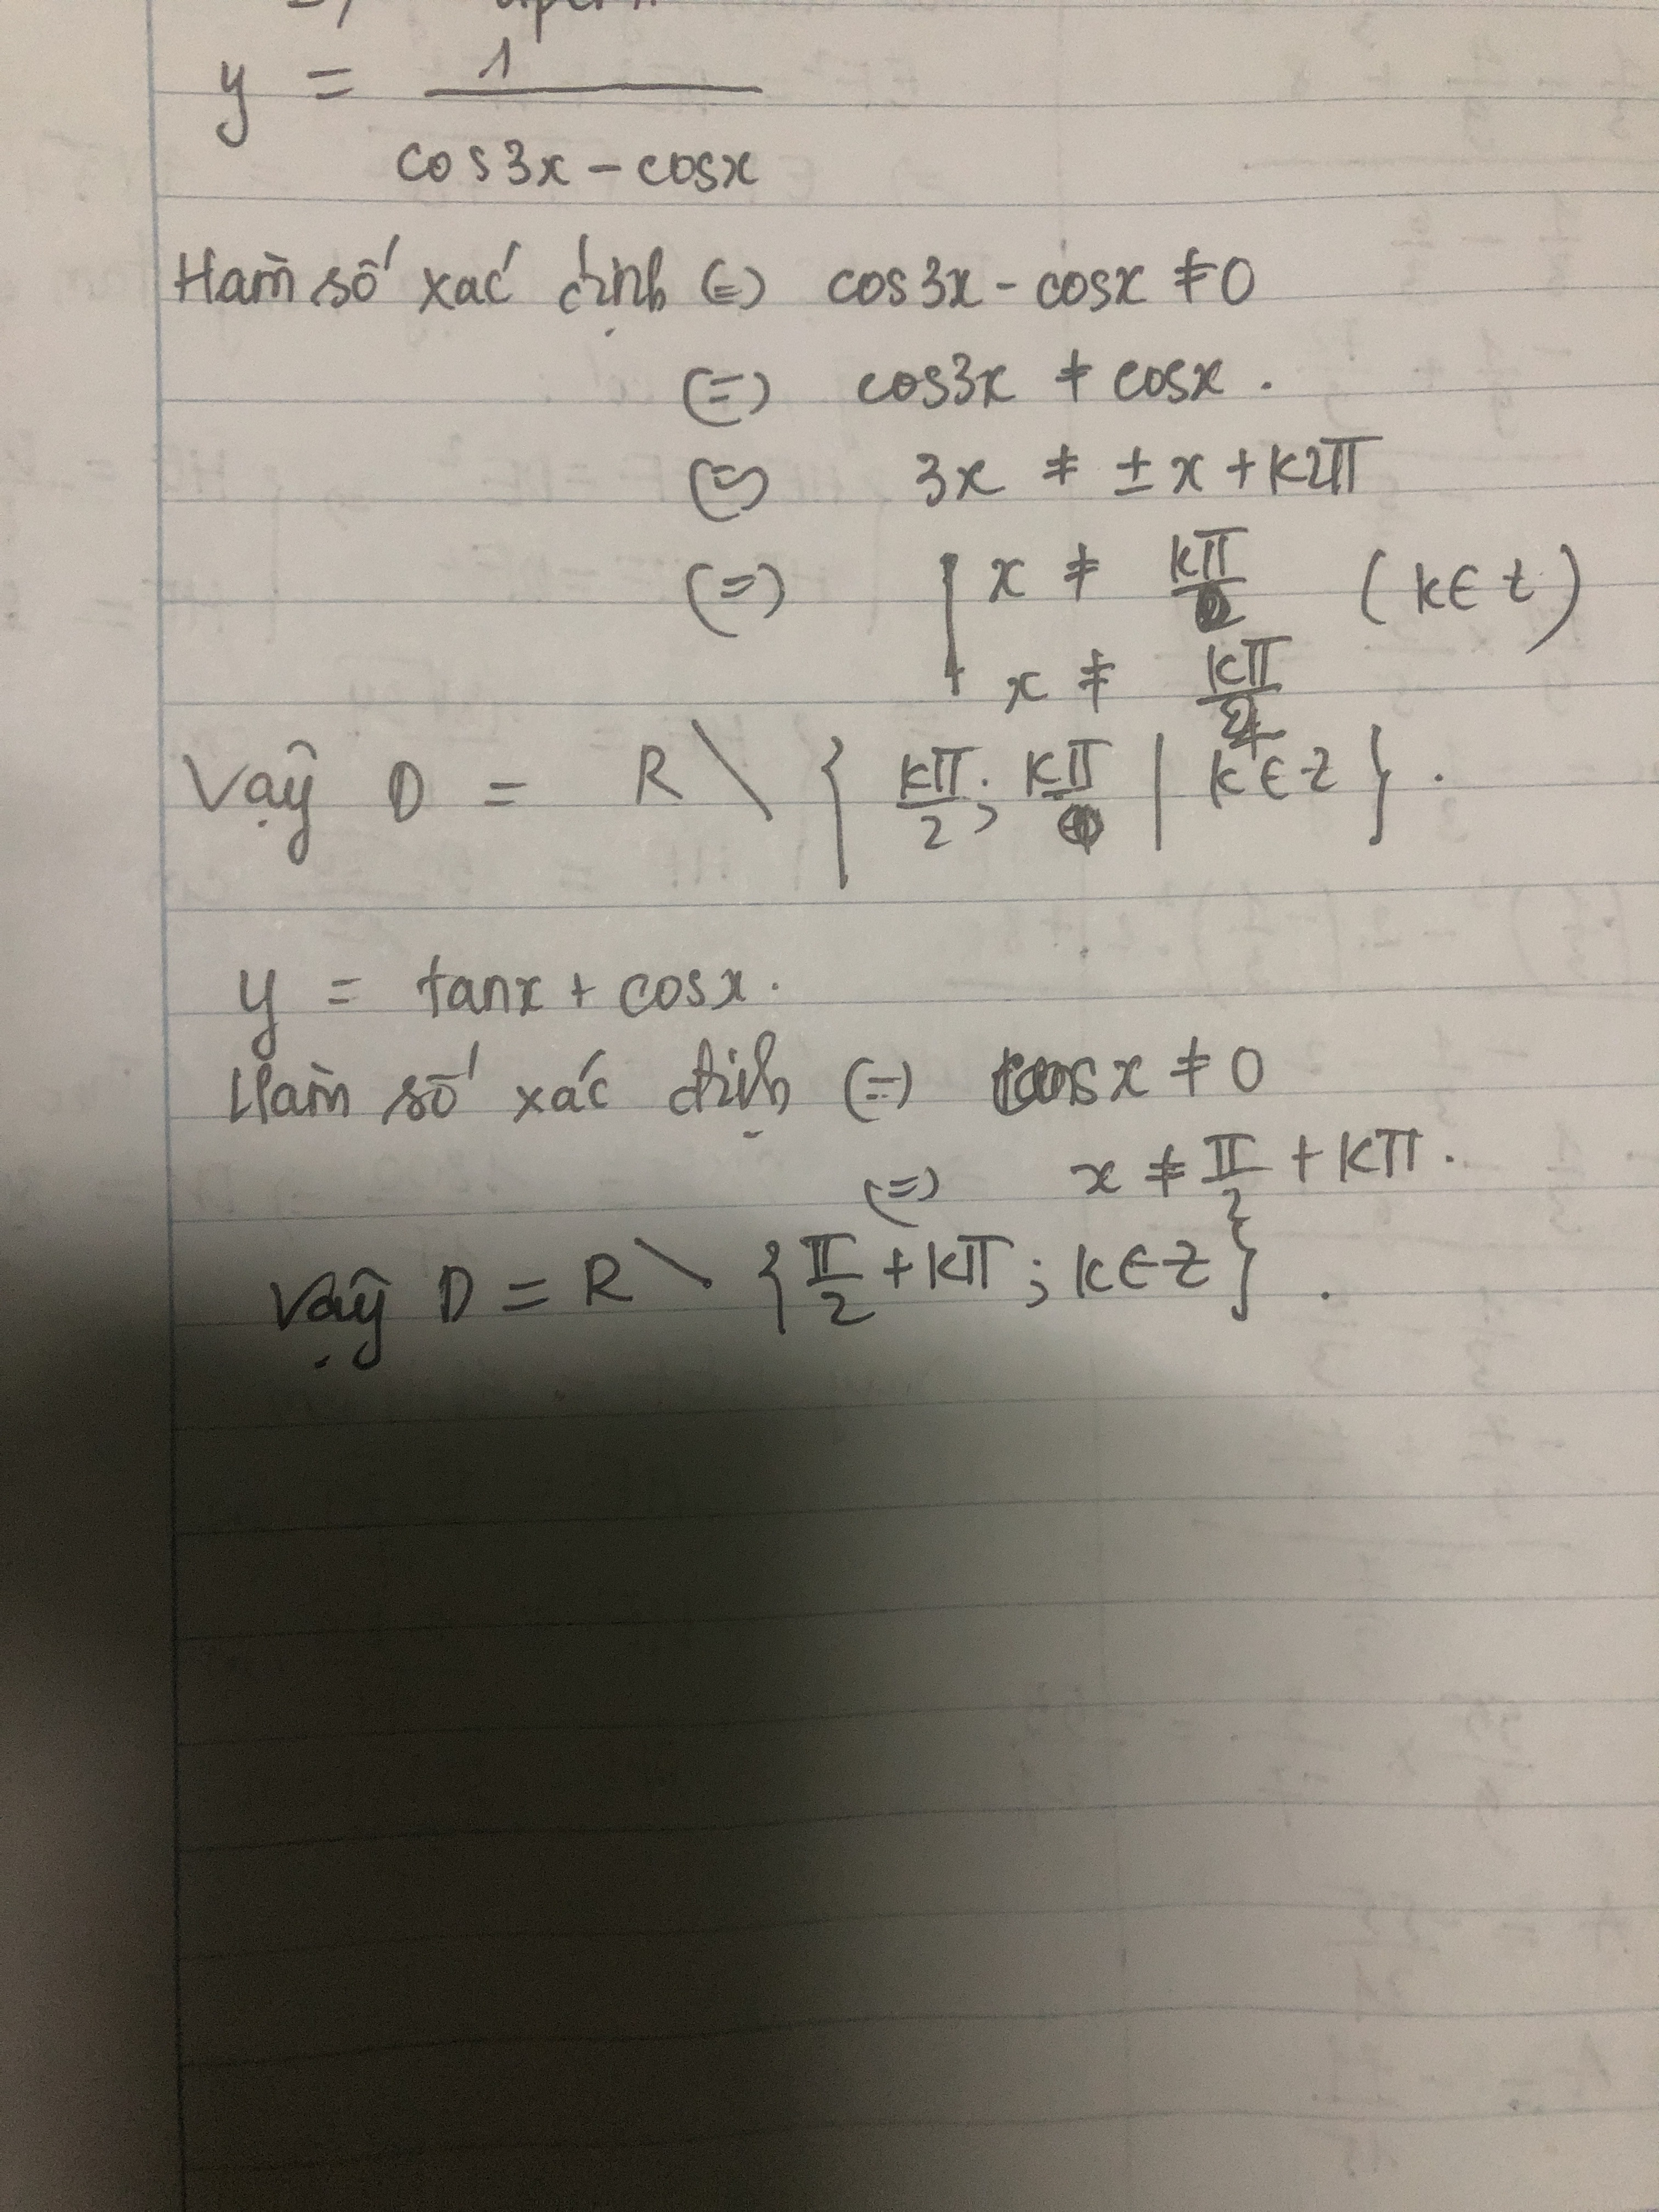 y = 1 / (cos3x - cosx)
Hàm số xác định (=) cos3x - cosx ≠ 0
(=) cos3x ≠ cosx.
(=) 3x ≠ ± x + k2π
(=) x ≠ kπ/2 (k∈Z)
x ≠ kπ
Vậy D = R \ { kπ/2; kπ | k∈Z }.
y = tanx + cosx.
Hàm số xác định (=) cosx ≠ 0
(=) x ≠ π/2 + kπ.
Vậy D = R \ {π/2 + kπ; k∈Z}.